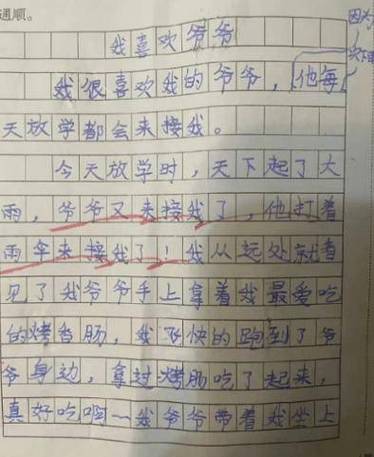 通顺。
我喜欢爷爷
因为
我很喜欢我的爷爷，他每
天放学都会来接我。
今天放学时，天下起了大
雨，爷爷又来接我了，他打着
雨伞来接我了！我从远处就看
见了我爷爷手上拿着我最爱吃
的烤香肠，我飞快的跑到了爷
爷身边，拿过烤肠吃了起来，
真好吃啊一我爷爷带着我坐上